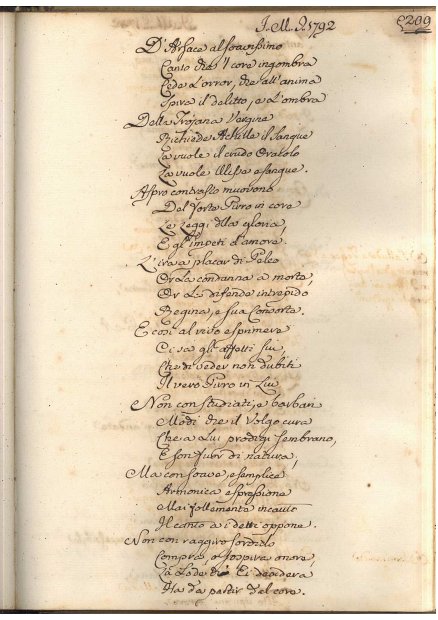 J. M. J. 1792
209
D'Arsace al soavissimo
Canto che 'l core ingombra
Cede l'orror, che all'anima
Spira il delitto, e l'ombra
Della Trojana Vergine
Richiede Achille il Sangue
La vuole il crudo Oracolo
La vuole Ulisse esangue.
Aspro contrasto muovono
Del forte Pirro in core
Le Leggi della gloria,
E gl'impeti d'amore.
L'ira a placar di Peleo
Or La condanna a morte,
Or La difende intrepido
Regina, e sua Consorte.
E così al vivo esprimere
Ci sa gli affetti sui,
Che di veder non dubiti
Il vero Pirro in Lui
Non con studiati, e barbari
Modi che il Volgo cura
Che a Lui prodigi sembrano,
E son fuor di natura,
Ma con soave, e semplice
Armonica espressione
Mai follemente incauto
Il canto a i detti oppone.
Non con raggiro sordido
Compra, o sospira onore,
La Lode Ei desidera
Ha da partir dal core.